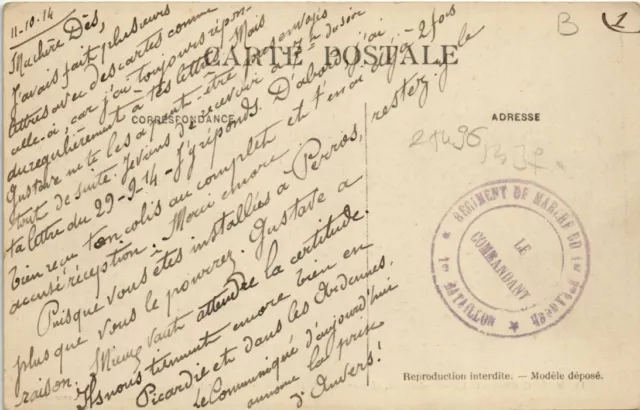 11-10.14
B
1
Ma chère Dès,
CARTE POSTALE
CORRESPONDANCE
ADRESSE
J'avais fait plusieurs
lettres avec des cartes comme
celle-ci; car j'ai toujours répon-
du régulièrement à tes lettres. Mais
Gustave ne te les a peut-être pas envoyés
tout de suite. Je viens de recevoir à 7h du soir
ta lettre du 29-9-14 - J'y réponds. D'abord j'ai
bien reçu ton colis au complet et t'en ai déjà 2 fois
accusé réception. Merci encore.
Puisque vous êtes installées à Perros, restez-y le
plus que vous le pourrez. Gustave a
raison. Mieux vaut attendre la certitude.
Ils nous tiennent encore bien en
Picardie et dans les Ardennes.
Le Communiqué d'aujourd'hui
annonce la prise
d'Anvers!
REGIMENT DE MARCHE DU 1er
1er BATAILLON
LE
COMMANDANT
Reproduction interdite. — Modèle déposé.